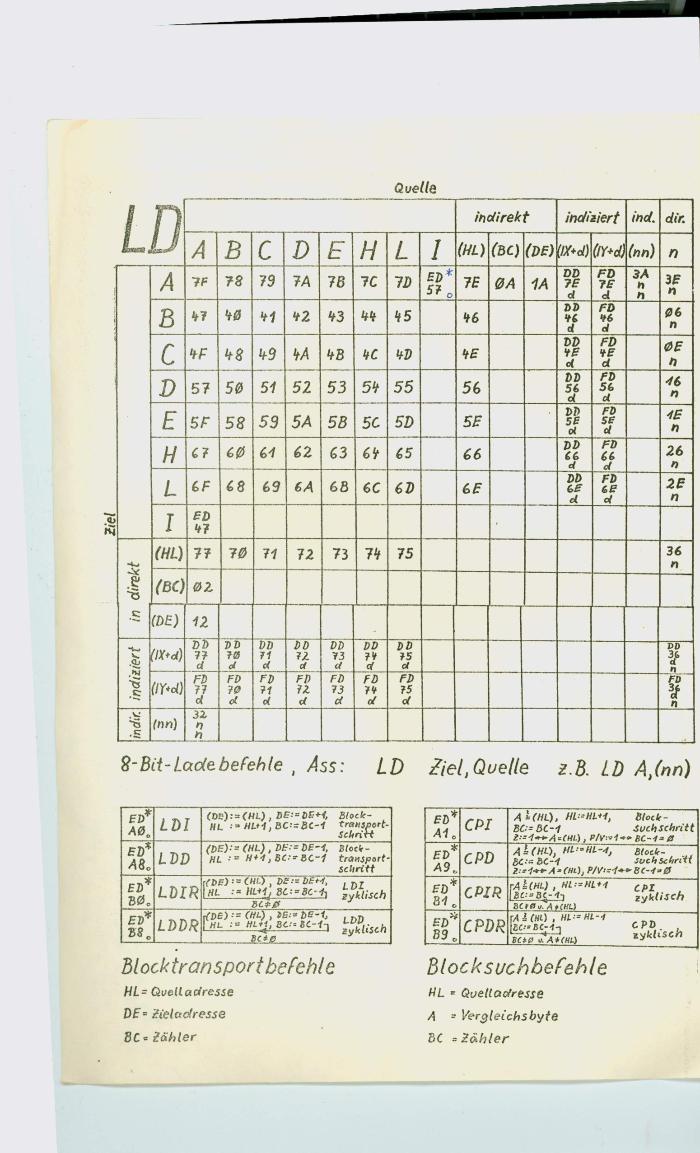 Quelle
LD indirekt indiziert ind. dir.
A B C D E H L I (HL) (BC) (DE) (IX+d) (IY+d) (nn) n
Ziel
A 7F 78 79 7A 7B 7C 7D ED* 57o 7E ØA 1A DD 7E d FD 7E d 3A n n 3E n
B 47 4Ø 41 42 43 44 45 46 DD 46 d FD 46 d Ø6 n
C 4F 48 49 4A 4B 4C 4D 4E DD 4E d FD 4E d ØE n
D 57 5Ø 51 52 53 54 55 56 DD 56 d FD 56 d 16 n
E 5F 58 59 5A 5B 5C 5D 5E DD 5E d FD 5E d 1E n
H 67 6Ø 61 62 63 64 65 66 DD 66 d FD 66 d 26 n
L 6F 68 69 6A 6B 6C 6D 6E DD 6E d FD 6E d 2E n
I ED 47
in direkt
(HL) 77 7Ø 71 72 73 74 75 36 n
(BC) Ø2
(DE) 12
indiziert
(IX+d) DD 77 d DD 7Ø d DD 71 d DD 72 d DD 73 d DD 74 d DD 75 d DD 36 d n
(IY+d) FD 77 d FD 7Ø d FD 71 d FD 72 d FD 73 d FD 74 d FD 75 d FD 36 d n
indir. (nn) 32 n n
8-Bit-Ladebefehle, Ass: LD Ziel, Quelle z.B. LD A,(nn)
ED* AØo LDI (DE):=(HL), DE:=DE+1, Block-
HL := HL+1, BC:=BC-1 transport-
schritt
ED* A8o LDD (DE):=(HL), DE:=DE-1, Block-
HL := H+1, BC:=BC-1 transport-
schritt
ED* BØo LDIR (DE):=(HL), DE:=DE+1, LDI
HL := HL+1, BC:=BC-1 zyklisch
BC≠Ø
ED* B8o LDDR (DE):=(HL), DE:=DE-1, LDD
HL := HL+1, BC:=BC-1 zyklisch
BC≠Ø
Blocktransportbefehle
HL = Quelladresse
DE = Zieladresse
BC = Zähler
ED* A1o CPI A ≟ (HL), HL:=HL+1, Block-
BC:=BC-1 suchschritt
Z:=1↔A=(HL), P/V:=1↔BC-1=Ø
ED* A9o CPD A ≟ (HL), HL:=HL-1, Block-
BC:=BC-1 suchschritt
Z:=1↔A=(HL), P/V:=1↔BC-1=Ø
ED* B1o CPIR A ≟ (HL), HL:=HL+1 CPI
BC:=BC-1 zyklisch
BC≠Ø u. A≠(HL)
ED* B9o CPDR A ≟ (HL), HL:=HL-1 CPD
BC:=BC-1 zyklisch
BC≠Ø u. A≠(HL)
Blocksuchbefehle
HL = Quelladresse
A = Vergleichsbyte
BC = Zähler